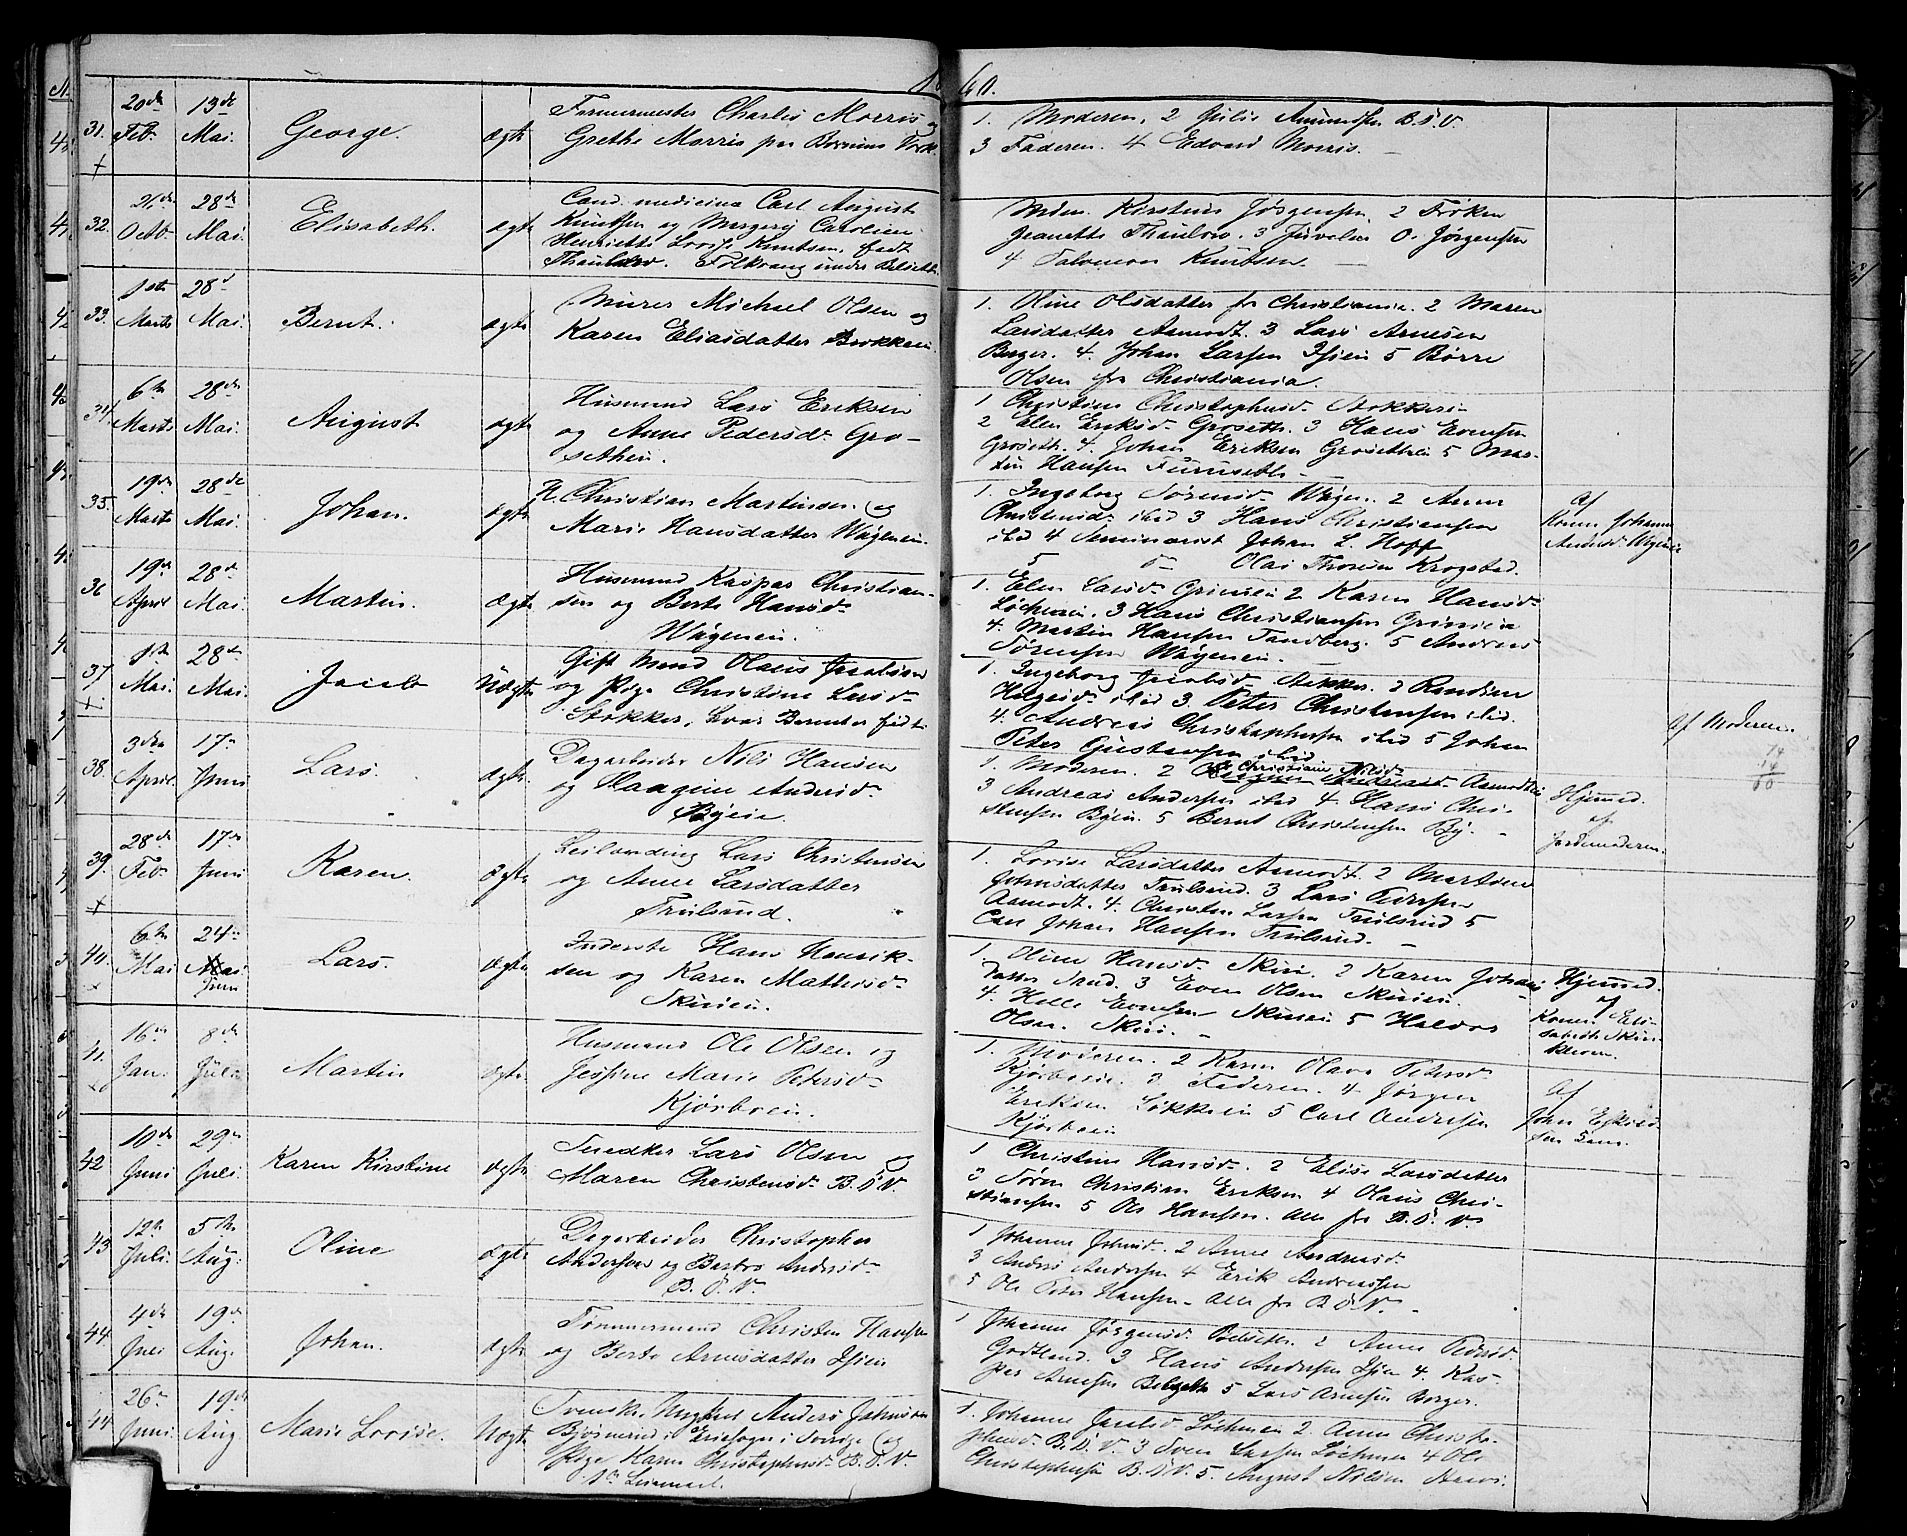 1860.
31. 20de Feb. 13de Mai. George. ægte
Charles Morris og
Grethe Morris paa
1. Moderen. 2 Julie Amundsen B.S.V.
3 Faderen. 4 Edvard Morris.
32. 21de Octb. 28de Mai. Elisabeth. ægte
Cand. medicina Carl August
Knudsen og Margery Caroline
Henriette Lovise Knudsen, født
Thaulow.
Kirstine Jørgensen. 2 Frøken
Jeanette Thaulow. 3 Juveleer O. Jørgensen
4 Salomon Knudsen.
33. 1ste Marts 28de Mai. Bernt. ægte
Murer Michael Olsen og
Karen Eliasdatter Brokken.
1. Oline Olsdatter fr Christiania. 2 Maren
Larsdatter Aamodt. 3 Lars Arnesen
Berger. 4. Johan Larsen Isien 5 Børre
Olsen fr Christiania.
34. 6te Marts 28de Mai. August ægte
Husmand Lars Eriksen
og Anne Pedersd. Gro-
sethen.
1 Christine Christophersd. Stokker
2 Elen Eriksd. Groseth. 3 Hans Evensen
Groseth. 4. Johan Eriksen Grosethen 5 Mar-
tin Hansen Furuseth
35. 19de Marts 28de Mai. Johan. ægte
Christian Martinsen og
Marie Hansdatter Wøyenen.
1. Ingeborg Sørensd. Wøyen. 2 Anne
Christensd. ibid 3 Hans Christiansen
ibid 4 Seminarist Johan L. Hoff
5 do Olai Krogstad.
Af
Konen Johanne
Andersd. Wøyen
36 19de April 28de Mai. Martin. ægte
Husmand Kaspar Christian-
sen og Berte Hansd.
Wøyenen.
1. Elen Larsd. Grinien 2 Karen Hansd.
3 Hans Christiansen Grinien
4. Martin Hansen Tandberg. 5 Andreas
Sørensen Wøyenen.
37 1ste Mai. 28de Mai. Jacob Uægte
Gift Mand Olaus Jacobsen
og Pige Christine Larsd.
Stokker, hvor Barnet er født.
1. Ingeborg Jacobsd. Stokker. 2 Randine
ibid 3. Peter Christensen ibid.
4. Andreas Christophersen ibid 5 Johan
Peter Gustavsen ibid
Af Moderen.
38. 3die April. 17de Juni Lars. ægte
Dagarbeider Nils Hansen
og Haagine Andersd.
Bøjein.
1. Moderen. 2 Christiane Nilsd.
3 Andreas Andersen ibid 4. Hans Chri-
stensen Bøjen. 5 Bernt Christensen By.
Hjemmed.
af
Jordemoderen.
14
14
60
39. 28de Feb. 17de Juni Karen. ægte
Leilending Lars Christensen
og Anne Larsdatter
Trulsrud.
1. Lovise Larsdatter Aamodt. 2 Martine
Johnsdatter Trulsrud. 3 Lars Pedersen
Aamodt. 4. Christen Larsen Trulsrud 5
Carl Johan Hansen Trulsrud.
40. 6te Mai 24de Mai. Juni Lars. ægte
Inderste Hans Henrik-
sen og Karen Mathisd.
Skiuien.
1. Oline Hansd. Skiui. 2 Karen Johans-
datter Sand. 3 Even Olsen Skiuien.
4. Helle Evensen Skiuien 5 Halvor
Olsen. Skiui.
Hjemmed.
af
Konen Eli-
sabeth Skiui-
41. 16de Jan. 8de Juli Martin ægte
Husmand Ole Olsen og
Jessine Marie Petersd.
Kjørboein.
1. Moderen. 2 Karen Olava Petersd.
Kjørboein. 3 Faderen. 4. Jørgen
Eriksen Løkkein 5 Carl Andersen
Kjørboein
Af
42 10de Juni 29de Juli. Karen Kirstine ægte
Snedker Lars Olsen og
Maren Christensd. B.S.V.
1 Christine Hansd. 2 Elise Larsdatter
3 Søren Christian Eriksen 4 Olaus Chri-
stiansen 5 Ole Hansen. Alle fr B.S.V.
43 12te Juli. 5te Aug. Oline ægte
Dagarbeider Christopher
Andersen og Berte Andersd.
B.S.V.
1 Johanne Johnsd. 2 Anne Andersd.
3 Anders Andersen 4 Erik Andreassen
5 Ole Peter Hansen - Alle fr B.S.V.
44. 4de Juli 19de Aug. Johan. ægte
Tømmermand Christen Hansen
og Berte Arnesdatter Isien
1 Johanne Jørgensd. 2 Anne Pedersd.
Godtland. 3 Hans Andersen Isien 4. Kas-
per Arnesen 5 Lars Arnesen Berger.
44 26de Juni. 19de Aug. Marie Lovise. Uægte
Svensk Ungkarl Anders Johnsen
i Sverige og
Pige Karen Christophersd. B.S.V.
1ste Leiermaal.
1. Johanne Jacobsd 2. Anne Christo-
phersd. B.S.V. 3 Sven Larsen 4 Ole
Christophersen B.S.V. 5. August Nilsen